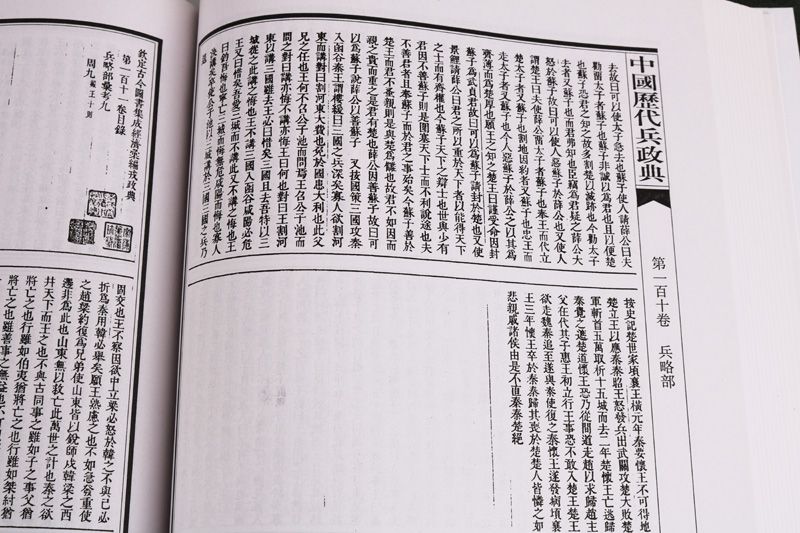 中國歷代兵政典
第一百十卷 兵略部
去故曰可以使太子急去也蘇子使人請薛公曰夫
勸留太子者蘇子也蘇子非誠以爲君也且以便楚
也蘇子恐君之知之故多割楚以滅跡也今勸太子
去者又蘇子也而君弗知也臣竊爲君疑之薛公大
怒於蘇子故曰可以使人惡蘇子於薛公也又使人
謂楚王曰夫使薛公留太子者蘇子也奉王而代立
楚太子者又蘇子也割地因約者又蘇子也忠王而
走太子者又蘇子也今人惡蘇子於薛公之以其爲
齊薄而爲楚厚也願王之知之楚王曰謹受命因封
蘇子爲武貞君故曰可以爲蘇子請封於楚也又使
景鯉請薛公曰君之所以重於天下者以能得天下
之士而有齊權也今蘇子天下之辯士也世與少有
君因不善蘇子則是圍塞天下士而不利說途也夫
不善君者且奉蘇子而於君之事殆矣今蘇子善於
楚王而君不蚤親則是與楚爲讎也故君不如因而
親之貴而重之是君有楚也薛公因善蘇子故曰可
以爲蘇子說薛公以善蘇子 又按國策三國攻秦
入函谷秦王謂樓緩曰三國之兵深矣寡人欲割河
東而講對曰割河東大費也免於國患大利也此父
兄之任也王何不召公子池而問焉王召公子池而
問之對曰講亦悔不講亦悔王曰何也對曰王割河
東以講三國雖去王必曰惜矣三國且去吾特以三
城從之此講之悔也王不講三國入函谷咸陽必危
王又曰惜矣吾愛三城而不講此又不講之悔也王
曰鈞吾悔也寧亡三城而悔無危咸陽而悔也寡人
決講矣卒使公子池以三城講於三國三國之兵乃
退
按史記楚世家頃襄王橫元年秦要懷王不可得地
楚立王以應秦秦昭王怒發兵出武關攻楚大敗楚
軍斬首五萬取析十五城而去二年楚懷王亡逃歸
秦覺之遮楚道懷王恐乃從間道走趙以求歸趙主
父在代其子惠王初立行王事恐不敢入楚王楚王
欲走魏秦追至遂與秦使復之秦懷王遂發病頃襄
王三年懷王卒於秦秦歸其喪於楚楚人皆憐之如
悲親戚諸侯由是不直秦秦楚絕
欽定古今圖書集成經濟彙編戎政典
第一百十一卷目錄
兵略部彙考九
周九 赧王十則
固交也王不察因欲中立梁必怒於韓之不與己必
折爲秦用韓必舉矣願王熟慮之也不如急發重使
之趙梁約復爲兄弟使山東皆以銳師戍韓梁之西
邊非爲此也山東無以救亡此萬世之計也秦之欲
并天下而王之也不與古同事之雖如子之事父猶
將亡之也行雖如伯夷猶將亡之也行雖如桀紂猶
將亡之也雖善事之無益也不